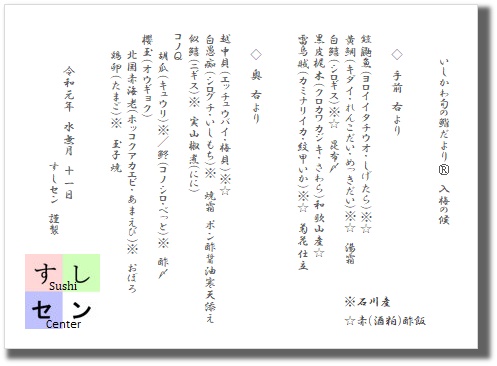 いしかわ旬の鮨だより® 入梅の候
◇ 手前 右より
鎧鼬魚(ヨロイイタチウオ・しげたら)※☆ 湯霜
黄鯛(キダイ・れんこだい・めっきだい)※☆
白鱚(シロギス)※☆ 昆布〆
黒皮梶木(クロカワカジキ・さわら)和歌山産☆
雷烏賊(カミナリイカ・紋甲いか)※☆ 菊花仕立
◇ 奥 右より
越中貝(エッチュウバイ・梅貝)※☆
白愚痴(シログチ・いしもち)※ 焼霜 ポン酢醤油寒天添え
似鱚(ニギス)※ 実山椒煮(にに)
コノQ
胡瓜(キュウリ)※/鮗(コノシロ・べっと)※ 酢〆
櫻玉(オウギョク)
北国赤海老(ホッコクアカエビ・あまえび)※ おぼろ
鶏卵(たまご)※ 玉子焼
令和元年 水無月 十一日
すしセン 謹製
※石川産
☆赤(酒粕)酢飯
すし
Sushi
セン
Center